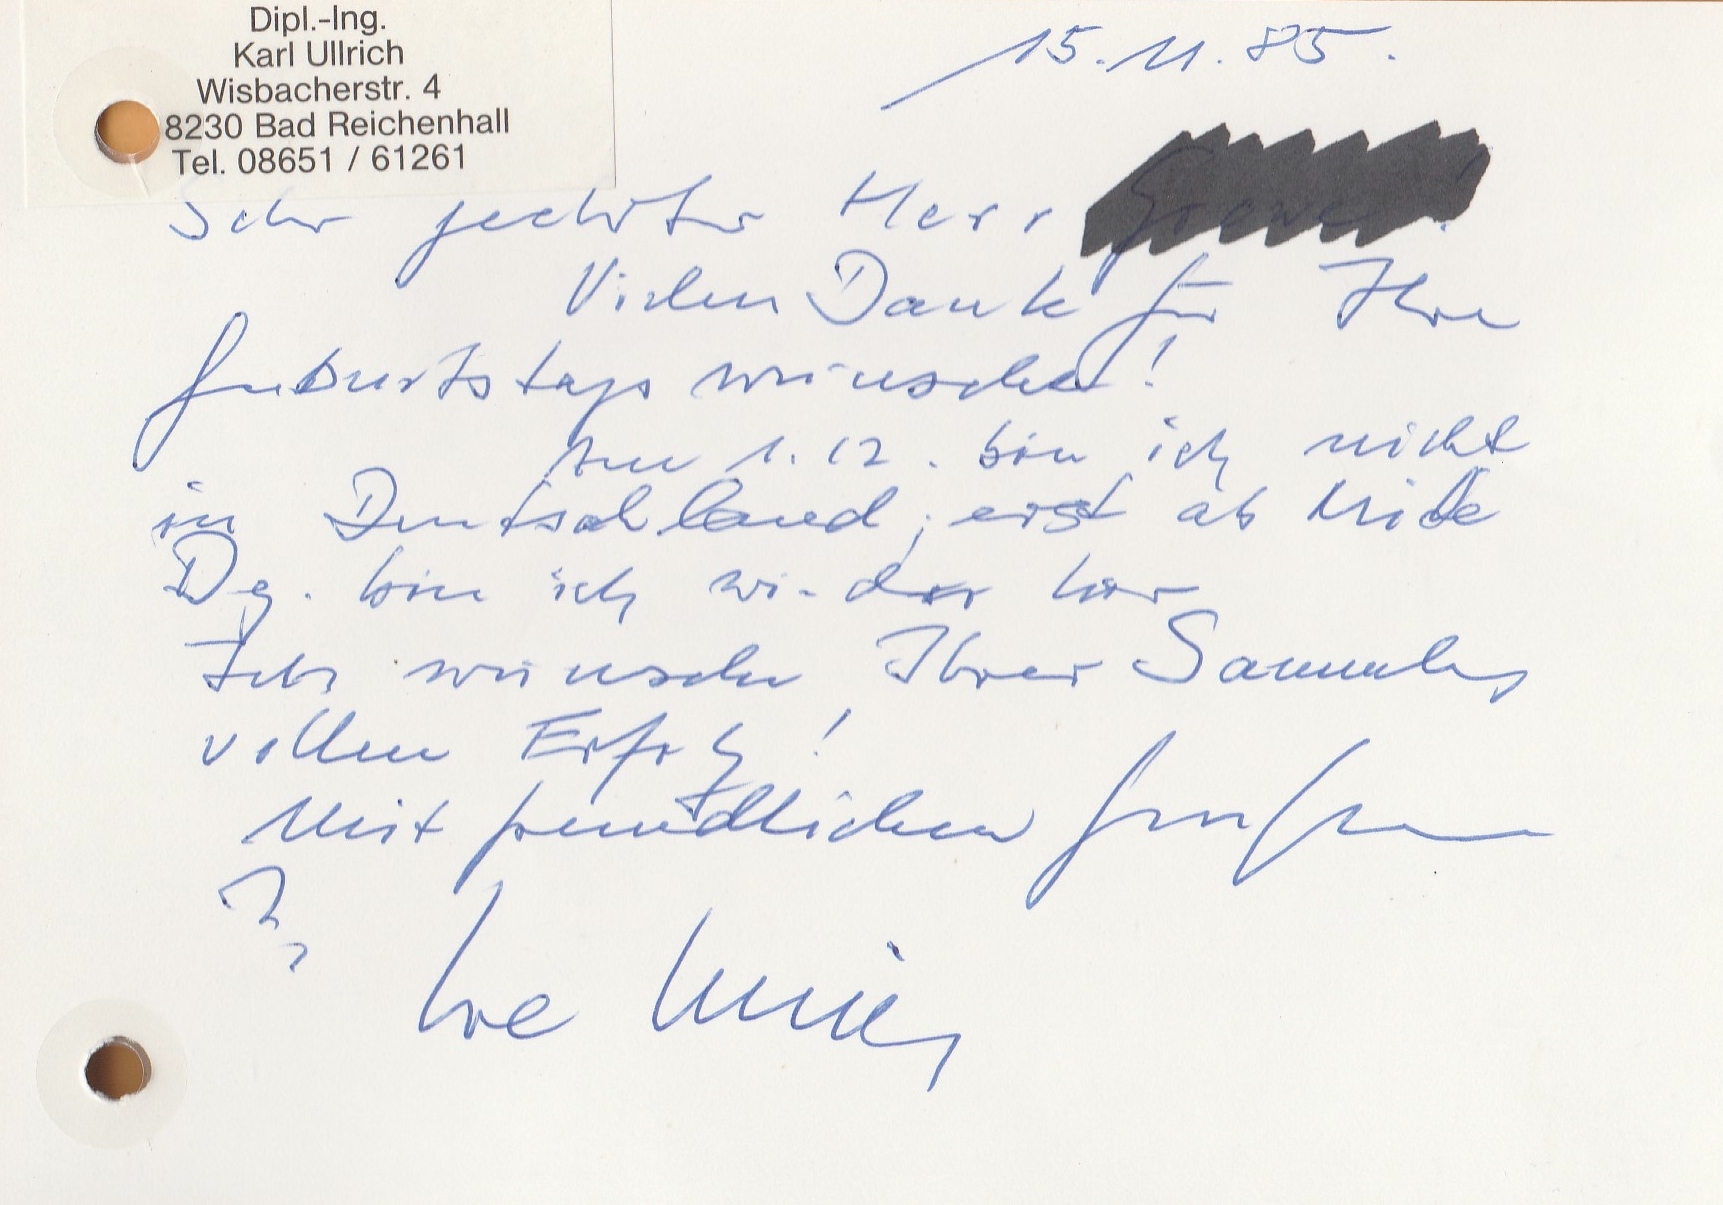 Dipl.-Ing.
Karl Ullrich
Wisbacherstr. 4
8230 Bad Reichenhall
Tel. 08651 / 61261
15.11.85.
Sehr geehrter Herr
Vielen Dank für Ihre
Geburtstagswünsche!
Am 1.12. bin ich nicht
in Deutschland, erst ab Mitte
Dez. bin ich wieder hier
Ich wünsche Ihrer Sammlung
vollen Erfolg!
Mit freundlichen Grüßen
Ihr